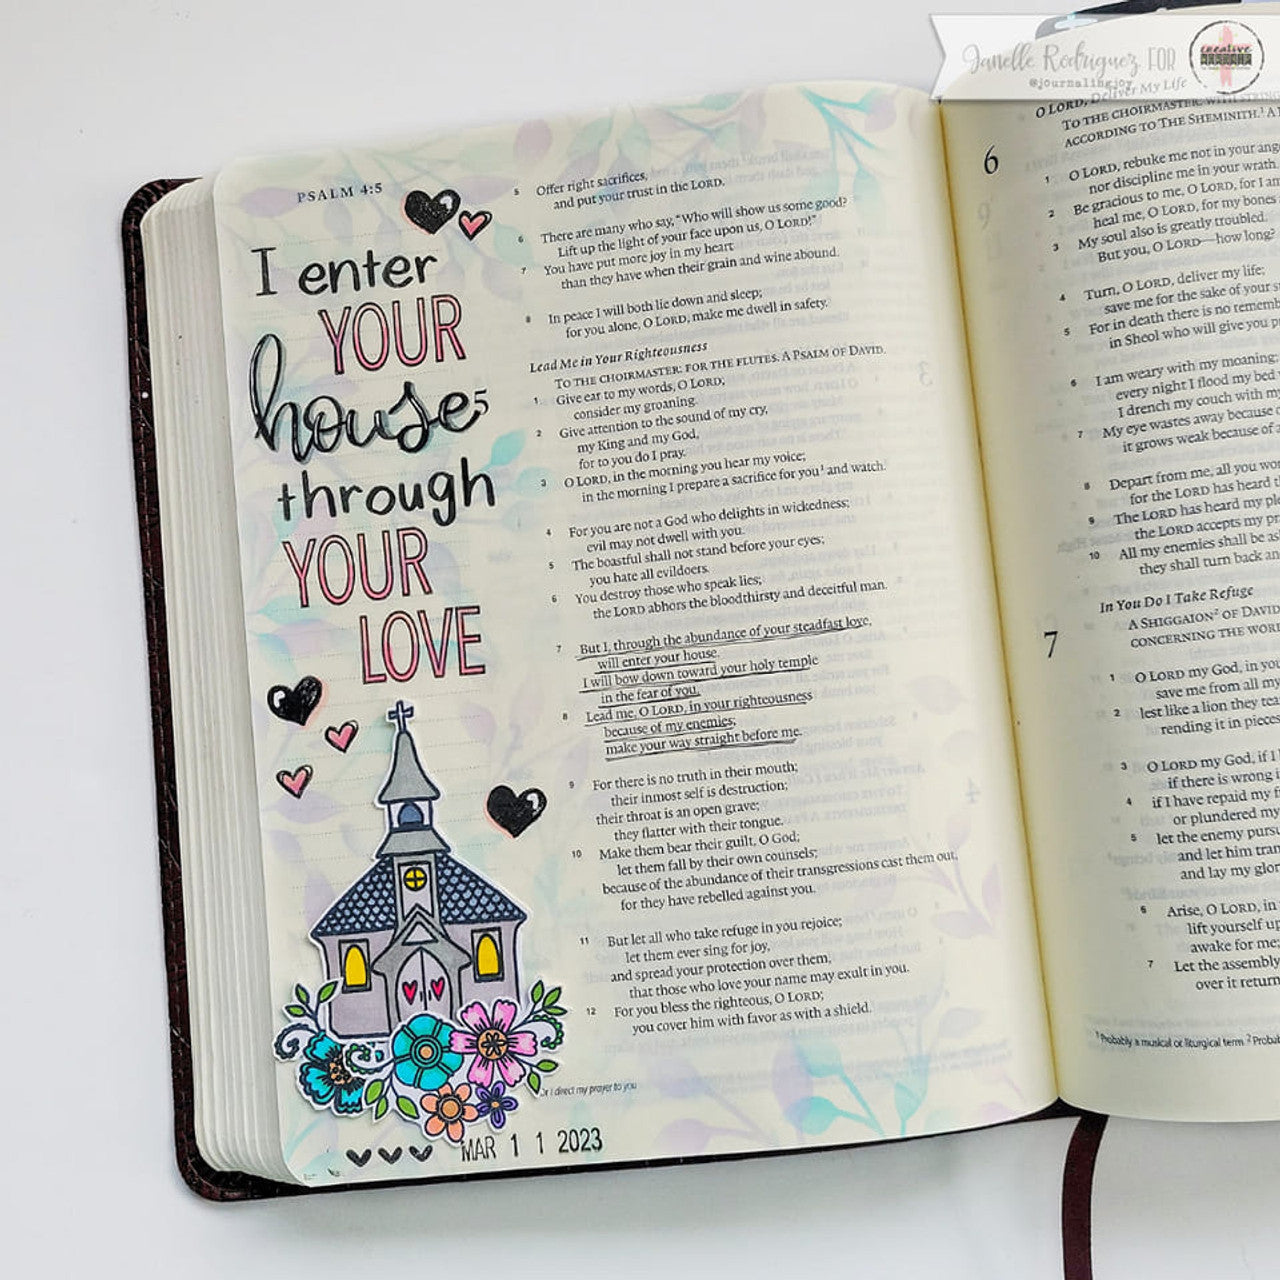 Janelle Rodriguez FOR
@journalingjoy
creative
PSALM 4:5
I enter
YOUR
house
5
through
YOUR
LOVE
MAR 1 1 2023
5 Offer right sacrifices,
and put your trust in the LORD.
6 There are many who say, “Who will show us some good?
Lift up the light of your face upon us, O LORD!”
7 You have put more joy in my heart
than they have when their grain and wine abound.
8 In peace I will both lie down and sleep;
for you alone, O LORD, make me dwell in safety.
Lead Me in Your Righteousness
TO THE CHOIRMASTER: FOR THE FLUTES. A PSALM OF DAVID.
1 Give ear to my words, O LORD;
consider my groaning.
2 Give attention to the sound of my cry,
my King and my God,
for to you do I pray.
3 O LORD, in the morning you hear my voice;
in the morning I prepare a sacrifice for you¹ and watch.
4 For you are not a God who delights in wickedness;
evil may not dwell with you.
5 The boastful shall not stand before your eyes;
you hate all evildoers.
6 You destroy those who speak lies;
the LORD abhors the bloodthirsty and deceitful man.
7 But I, through the abundance of your steadfast love,
will enter your house.
I will bow down toward your holy temple
in the fear of you.
8 Lead me, O LORD, in your righteousness
because of my enemies;
make your way straight before me.
9 For there is no truth in their mouth;
their inmost self is destruction;
their throat is an open grave;
they flatter with their tongue.
10 Make them bear their guilt, O God;
let them fall by their own counsels;
because of the abundance of their transgressions cast them out,
for they have rebelled against you.
11 But let all who take refuge in you rejoice;
let them ever sing for joy,
and spread your protection over them,
that those who love your name may exult in you.
12 For you bless the righteous, O LORD;
you cover him with favor as with a shield.
Or I direct my prayer to you
O LORD, Deliver My Life
TO THE CHOIRMASTER: WITH STRING
ACCORDING TO THE SHEMINITH.¹ A
6
1 O LORD, rebuke me not in your ang
nor discipline me in your wrath
2 Be gracious to me, O LORD, for I am
heal me, O LORD, for my bones
3 My soul also is greatly troubled.
But you, O LORD—how long?
4 Turn, O LORD, deliver my life;
save me for the sake of your s
5 For in death there is no rememb
in Sheol who will give you p
6 I am weary with my moaning;
every night I flood my bed
I drench my couch with m
7 My eye wastes away because
it grows weak because of a
8 Depart from me, all you wor
for the LORD has heard t
9 The LORD has heard my ple
the LORD accepts my pr
10 All my enemies shall be as
they shall turn back an
In You Do I Take Refuge
A SHIGGAION² OF DAVID
CONCERNING THE WOR
7
1 O LORD my God, in you
save me from all my
2 lest like a lion they tea
rending it in piece
3 O LORD my God, if I
if there is wrong i
4 if I have repaid my f
or plundered my
5 let the enemy pursu
and let him tram
and lay my glor
6 Arise, O LORD, in
lift yourself up
awake for me;
7 Let the assembly
over it return
¹ Probably a musical or liturgical term ² Probab